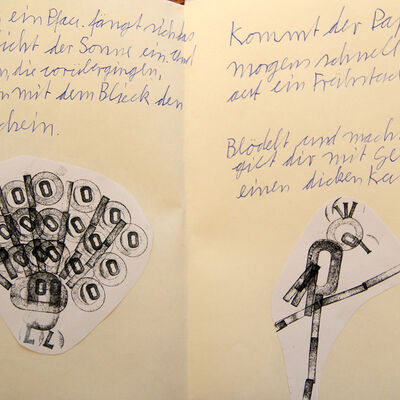 ein Pfau. fängt sich das
icht der Sonne ein und
n, die vorübergingen,
n mit dem Blick den
chein.
Kommt der Pap
morgens schnell
auf ein Frühstück
Blödelt und mach
gibt dir mit Ge
einen dicken Ku